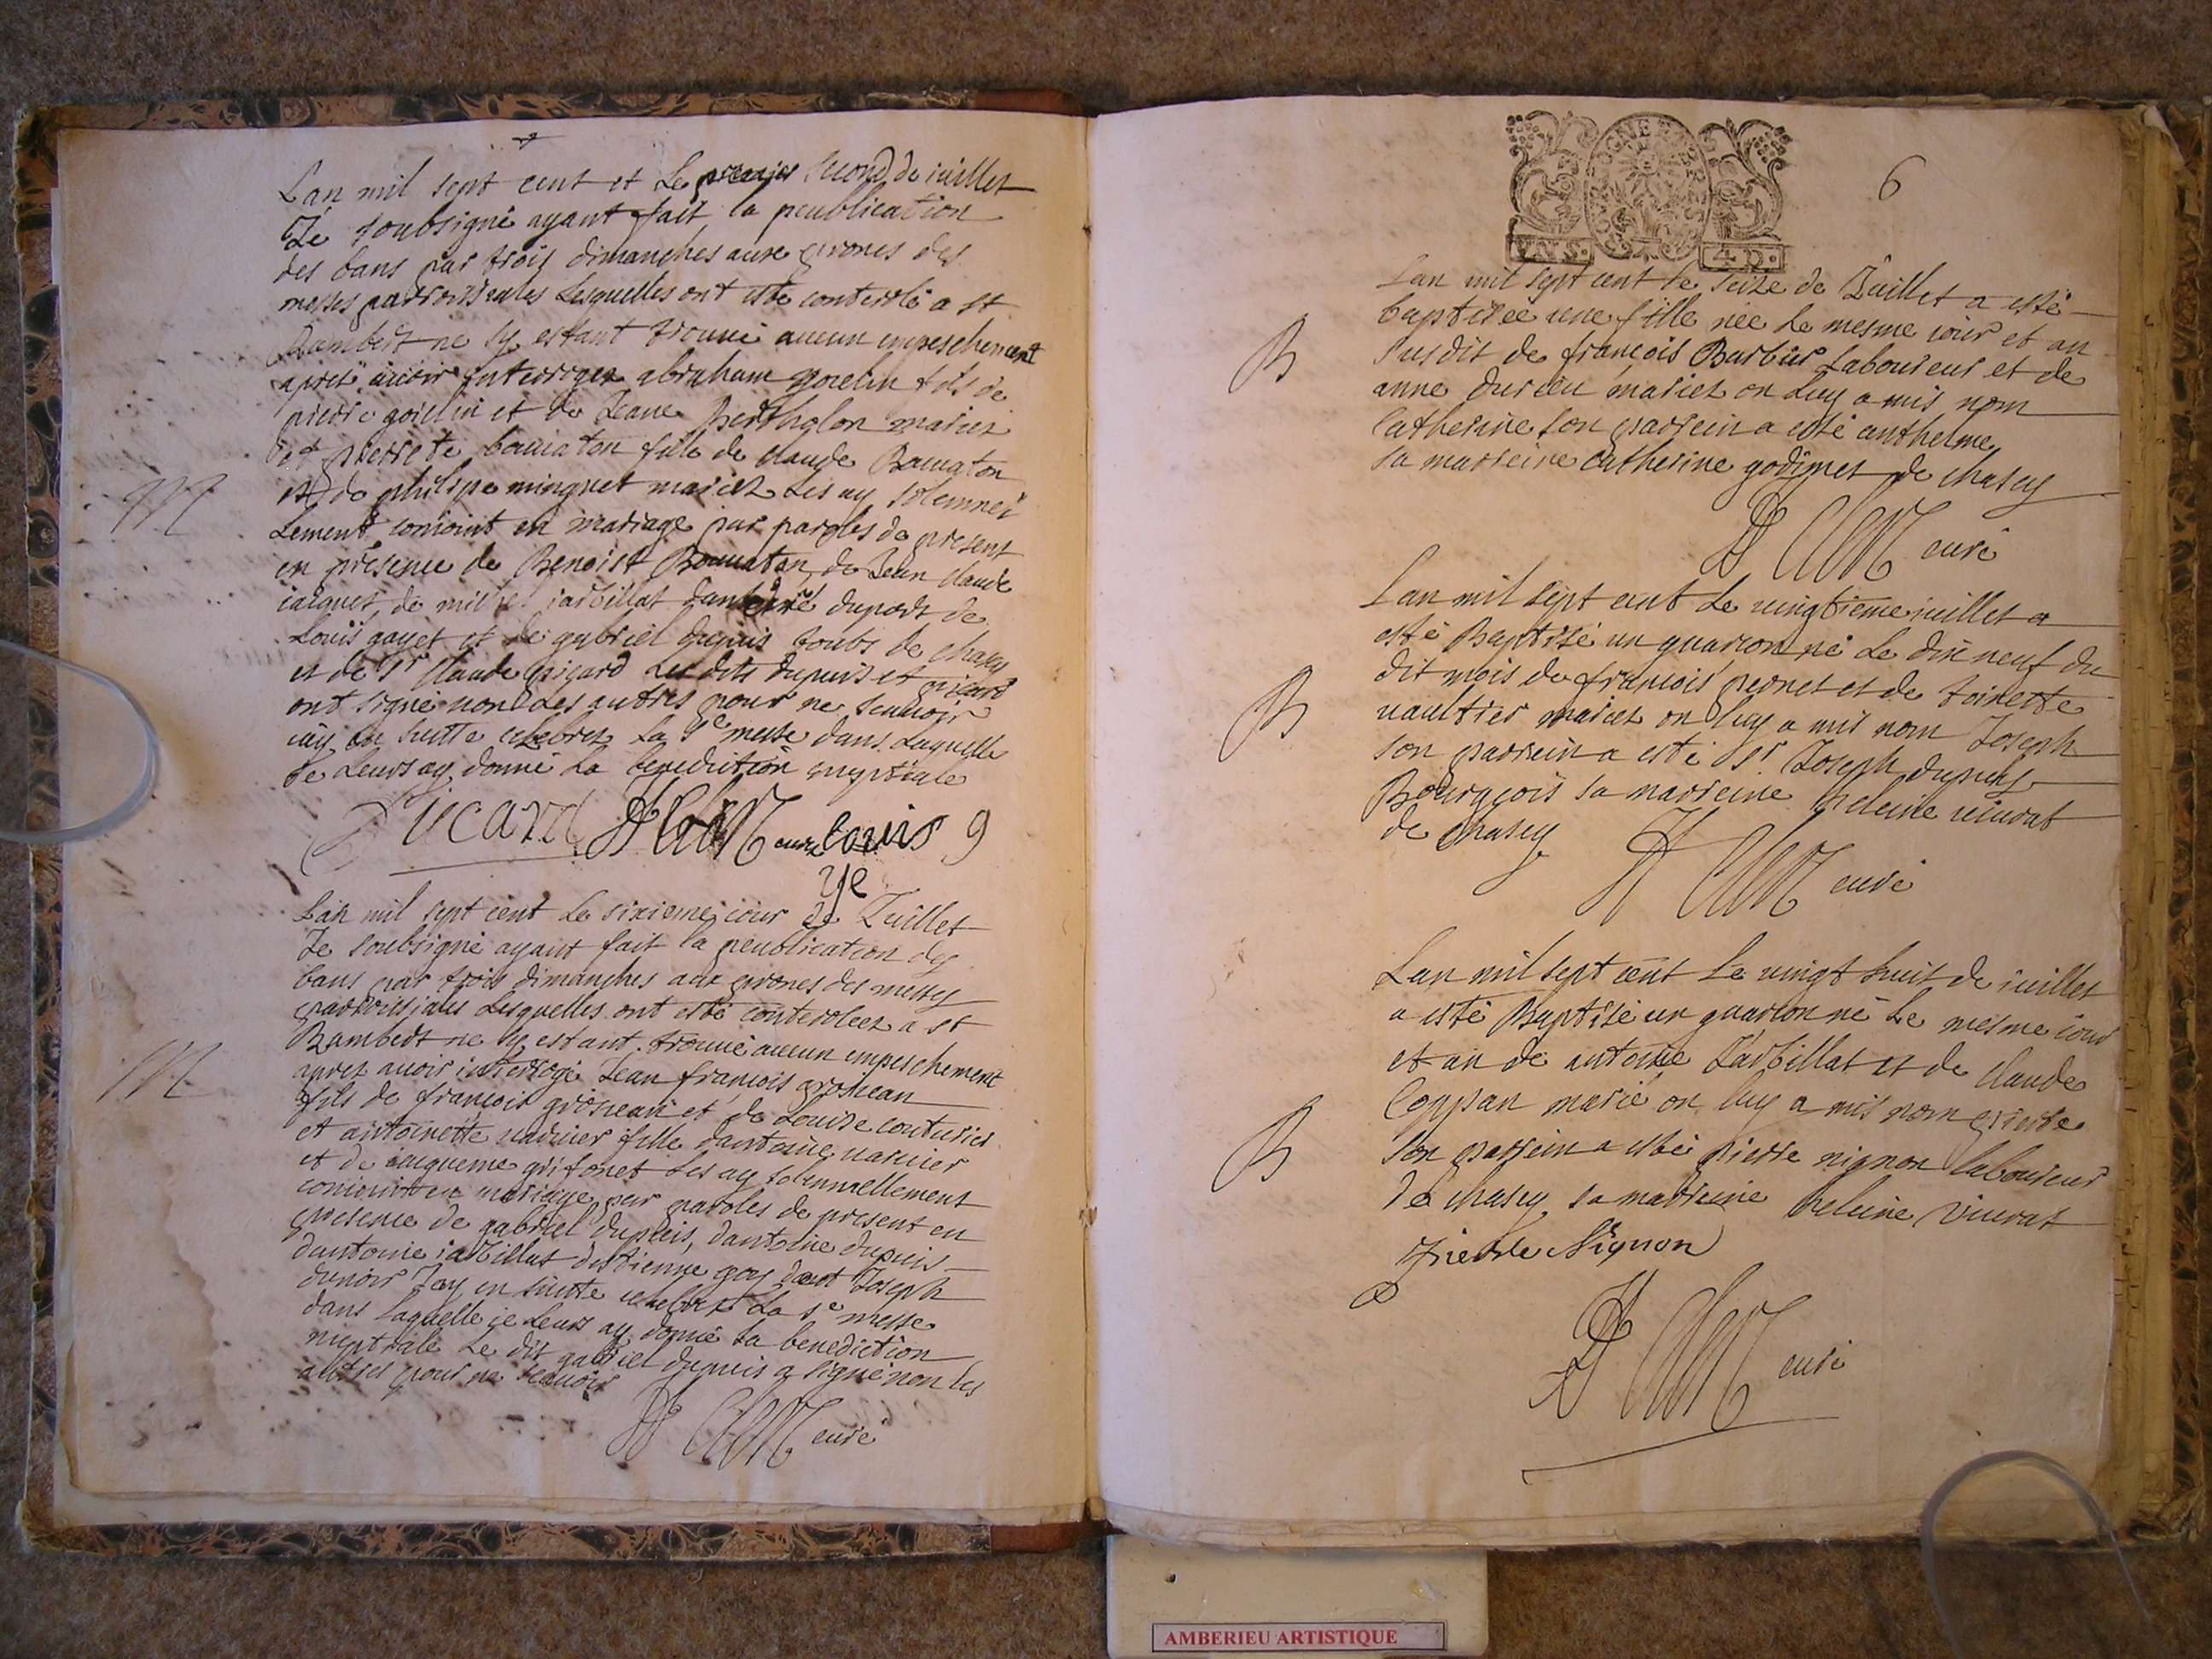 Lan mil sept cent et Le premier second de iuillet
Je soubsigné ayant fait la peublication
des bans par trois dimanches aux prones des
messes parroissiales Lesquelles ont esté conterolé a st
Rambert ne sy estant trouué aucun empeschement
apres auoir interroger abraham goielin fils de
pierre goielin et de Jeane Berthglon mariez
et pierrete Bouuaton fille de claude Bouuaton
et de philipe minguet mariez Les ay solemnel
Lement conioint en mariage par paroles de present
en presence de Benoist Bouuaton de Jean claude
iaiquet, de michel iarbillat dantoine duport de
Louis gayet et de gabriel dupuis touts de chasey
et de Sr Claude picard Les dits dupuis et picard
ont signé non Les autres pour ne scauoir
iay en suitte celebrez La Ste messe dans Laquelle
Je Leurs ay donné La benediction nuptiale
Picard curé Louis g
ye
M
Lan mil sept cent Le sixieme iour de Juillet
Je soubsigné ayant fait la peublication des
bans par trois dimanches aux prones des messes
parroissiales Lesquelles ont esté conterolees a st
Rambert ne sy estant trouué aucun empeschement
apres auoir interrogé Jean françois grosiean
fils de françois grosiean et de Louize couturier
et antoinette uarnier fille dantoine uarnier
et de iaiqueme grifonet Les ay solemnellement
conioint en mariage par paroles de present en
presence de gabriel dupuis, dantoine dupuis
dantoine iarbillat destienne goy dant Joseph
dunoir Jay en suitte celebré La Ste messe
dans Laquelle ie Leurs ay donné La benediction
nuptiale Le dit gabriel dupuis a signé non les
autres pour ne scauoir
curé
M
6
BOURGOGNE BRES
UN S. 4 D.
Lan mil sept cent le seize de Juillet a esté
baptisée une fille née Le mesme iour et an
susdit de françois Barbier Laboureur et de
anne durieu mariez on Luy a mis nom
Catherine son parrein a esté anthelme
sa marreine Catherine godimet de chasey
curé
B
Lan mil sept cent Le uingtieme iuillet a
esté Baptisé un guarcon né Le dix neuf du
dit mois de françois pernet et de toinette
uaultier mariez on luy a mis nom Joseph
son parrein a esté Sr Joseph dupuis
Bourgeois sa marreine heleine uiurat
de chasey
curé
B
Lan mil sept cent Le uingt huit de iuillet
a esté Baptisé un guarcon né Le mesme iour
et an de antoine Jarbillat et de claude
Coppan marié on luy a mis nom pierre
son parrein a esté pierre nignon laboureur
de chasey sa marreine heleine viurat
pierre Nignon
curé
B
AMBERIEU ARTISTIQUE